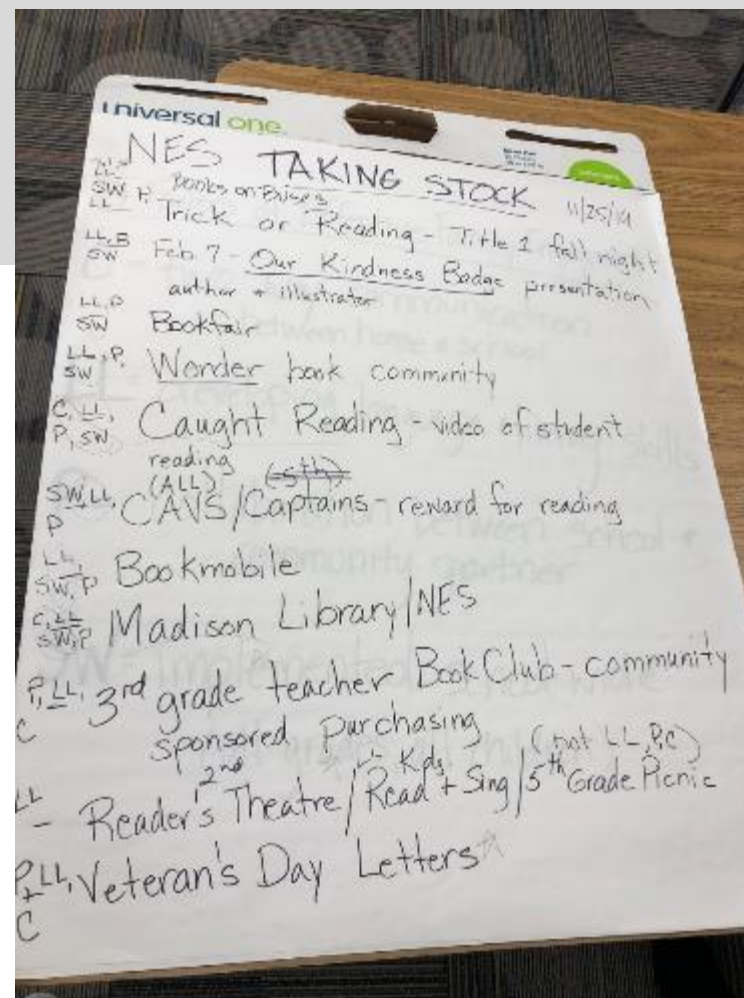 universal one
NES TAKING STOCK 11/25/19
SW, P, Books on
LL Trick or Reading - Title 1 fall night
LL, B
SW Feb. 7 - Our Kindness Badge presentation
author + illustrator
LL, P
SW Bookfair
LL, P,
SW Wonder book community
C, LL,
P, SW Caught Reading - video of student
reading
(ALL) (5th)
SW, LL,
P CAVS/Captains - reward for reading
LL,
SW, P Bookmobile
C, LL
SW, P Madison Library/NES
P, LL,
C 3rd grade teacher Book Club - community
sponsored purchasing
2nd Kdg (not LL, P, C)
LL - Reader's Theatre/Read + Sing/5th Grade Picnic
P, LL,
+
C Veteran's Day Letters